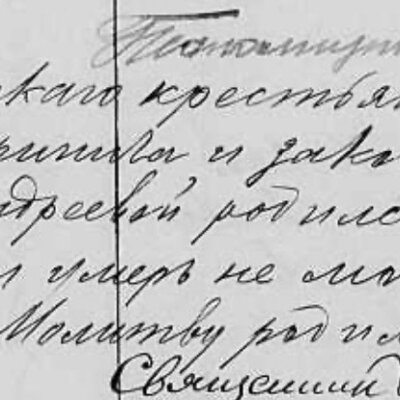 скаго крестьян
рилла и зако
ндреевой родилс
и умеръ не мо
Молитву роди
Священник